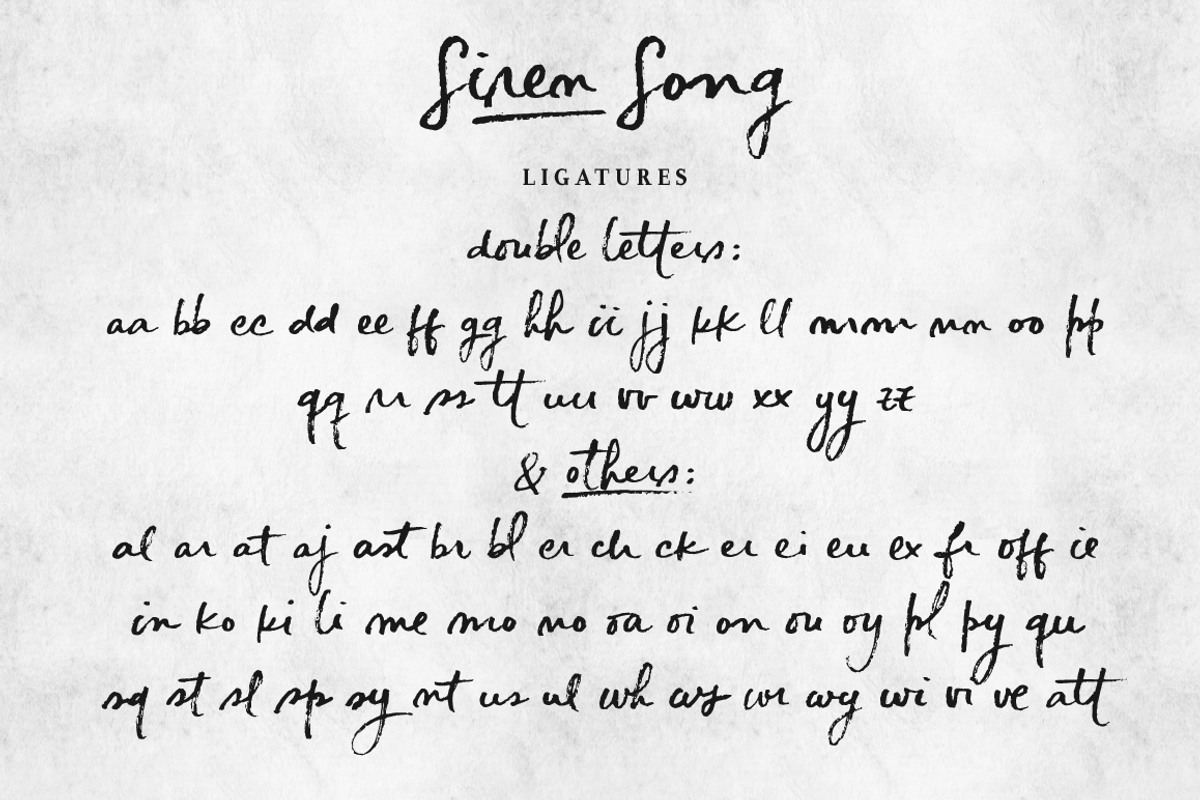 Siren Song
LIGATURES
double letters:
aa bb cc dd ee ff gg hh ii jj kk ll mm nn oo pp
qq rr ss tt uu vv ww xx yy zz
& others:
al ar at aj ast br bl er ch ck ei eu ex fr off ie
in ko ki li me mo no oa oi on ou oy pl py qu
sq st sl sp sy nt us ul wh wr wy wi vi ve att